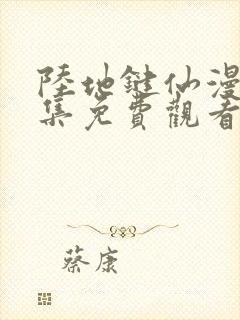 陸地鍵仙漫
集免費觀看
蔡康